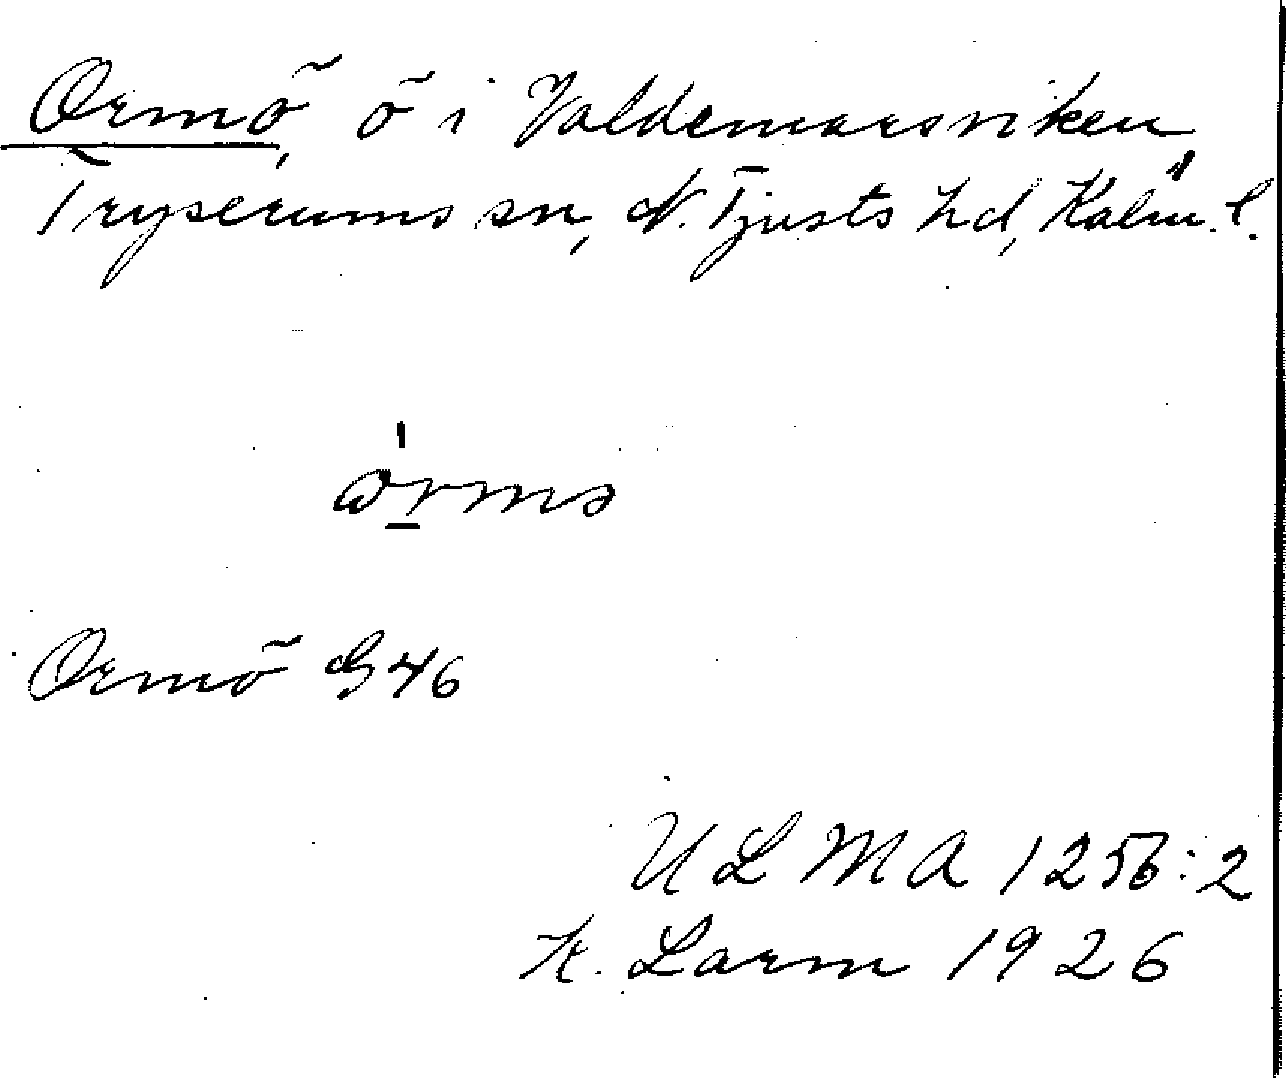 Ormö, ö i Valdemarsviken,
Tryserums sn, N. Tjusts hd, Kalm. l.
Ormö G46
ULMA 1256:2
K. Larm 1926